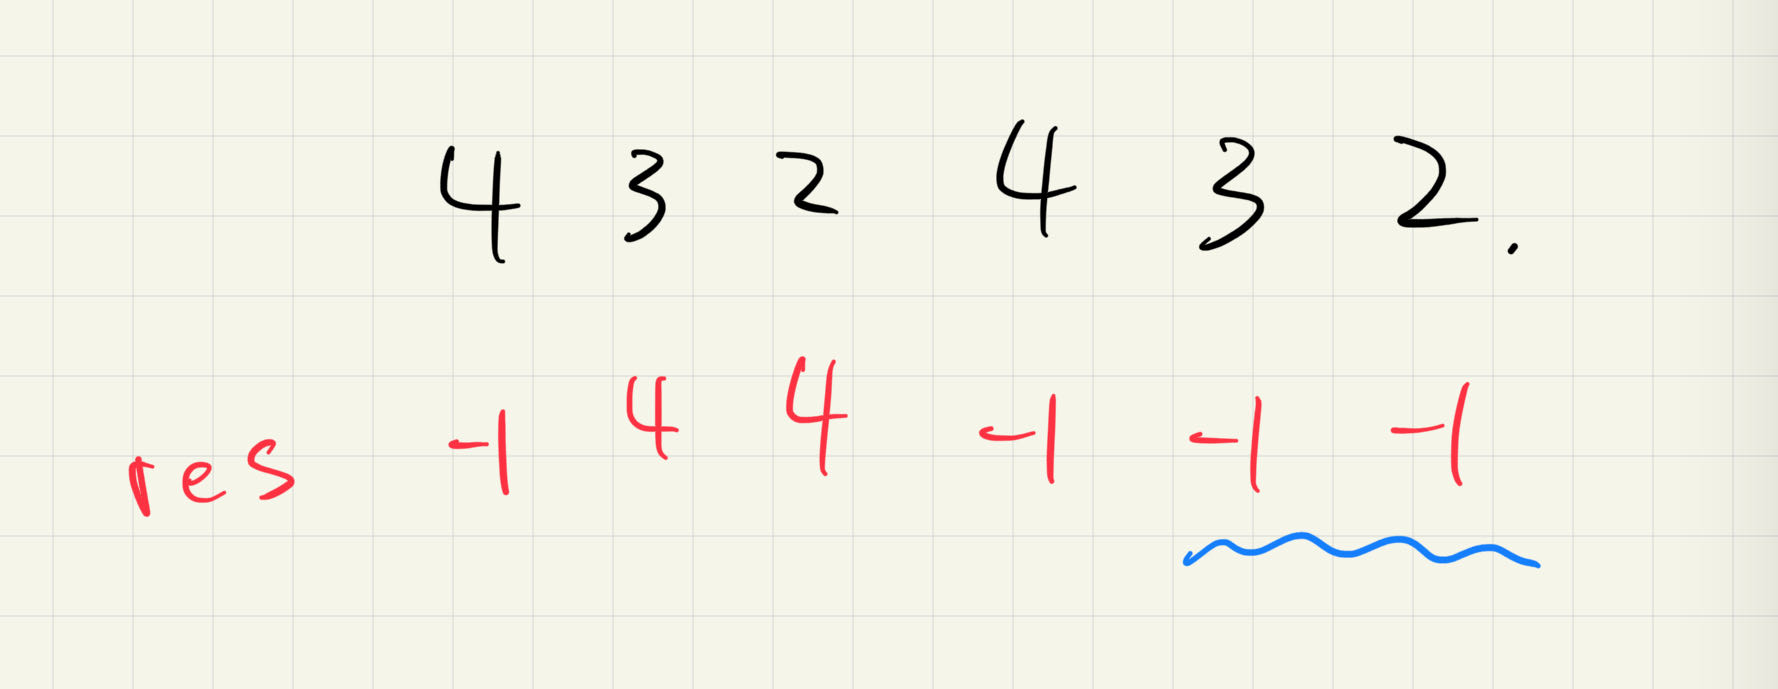 4 3 2 4 3 2.
res -1 4 4 -1 -1 -1